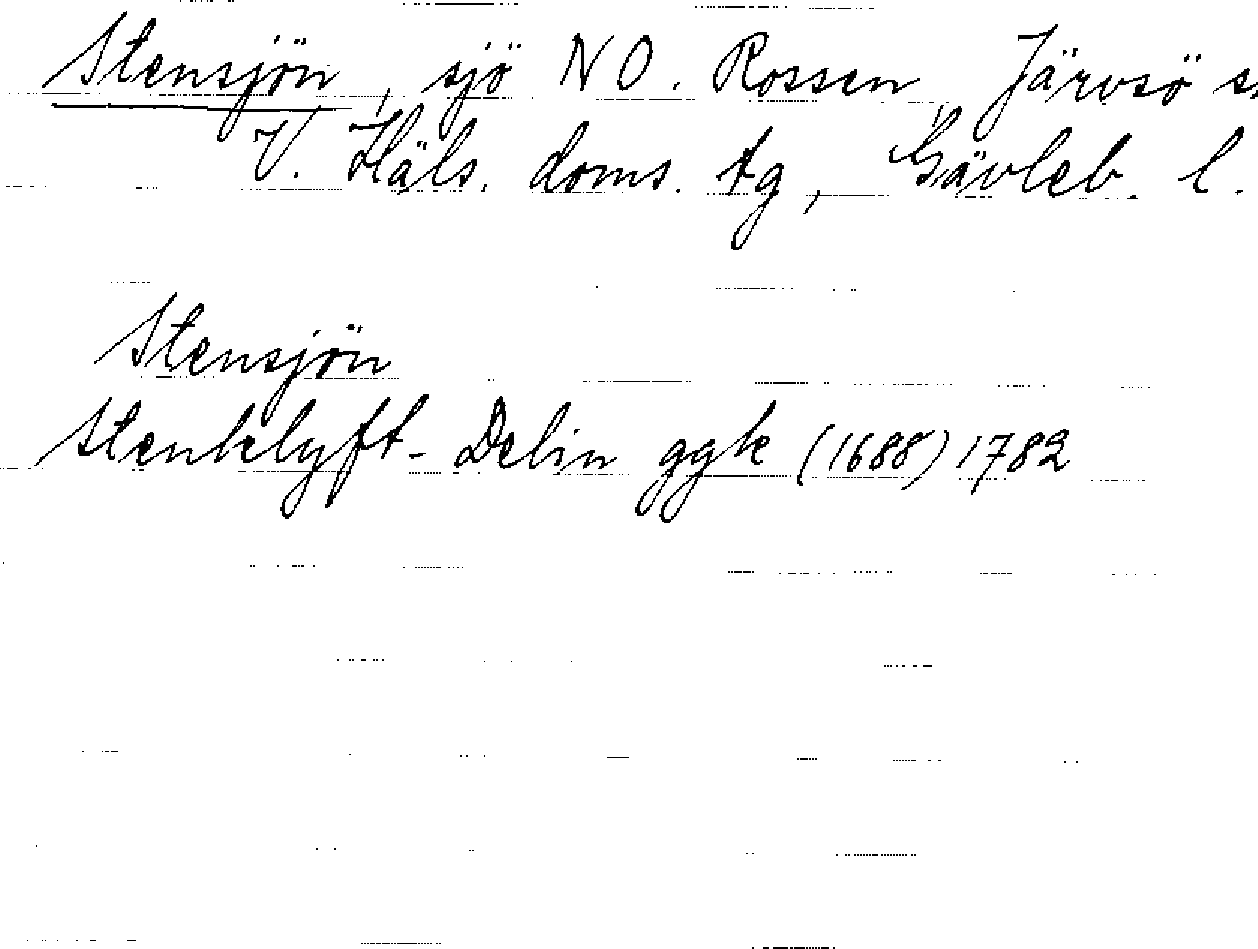 Stensjön, sjö NO. Rossen, Järvsö s
V. Häls. doms. tg, Gävleb. l.
Stensjön
Stenklyft- Delin ggk (1688) 1782